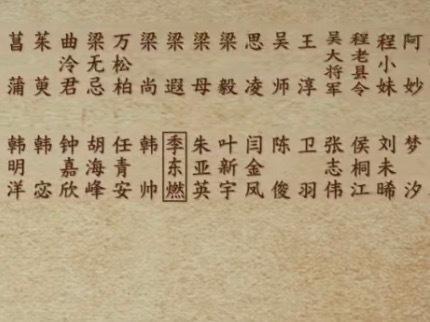 阿妙 梦汐
程小妹 刘未晞
程老县令 侯桐江
吴大将军 张志伟
王淳 卫羽
吴师 陈俊
思凌 闫金凤
梁毅 叶新宇
梁母 朱亚英
梁遐 季东燃
梁尚 韩帅
万松柏 任青安
梁无忌 胡海峰
曲泠君 钟嘉欣
茱萸 韩宓
菖蒲 韩明洋